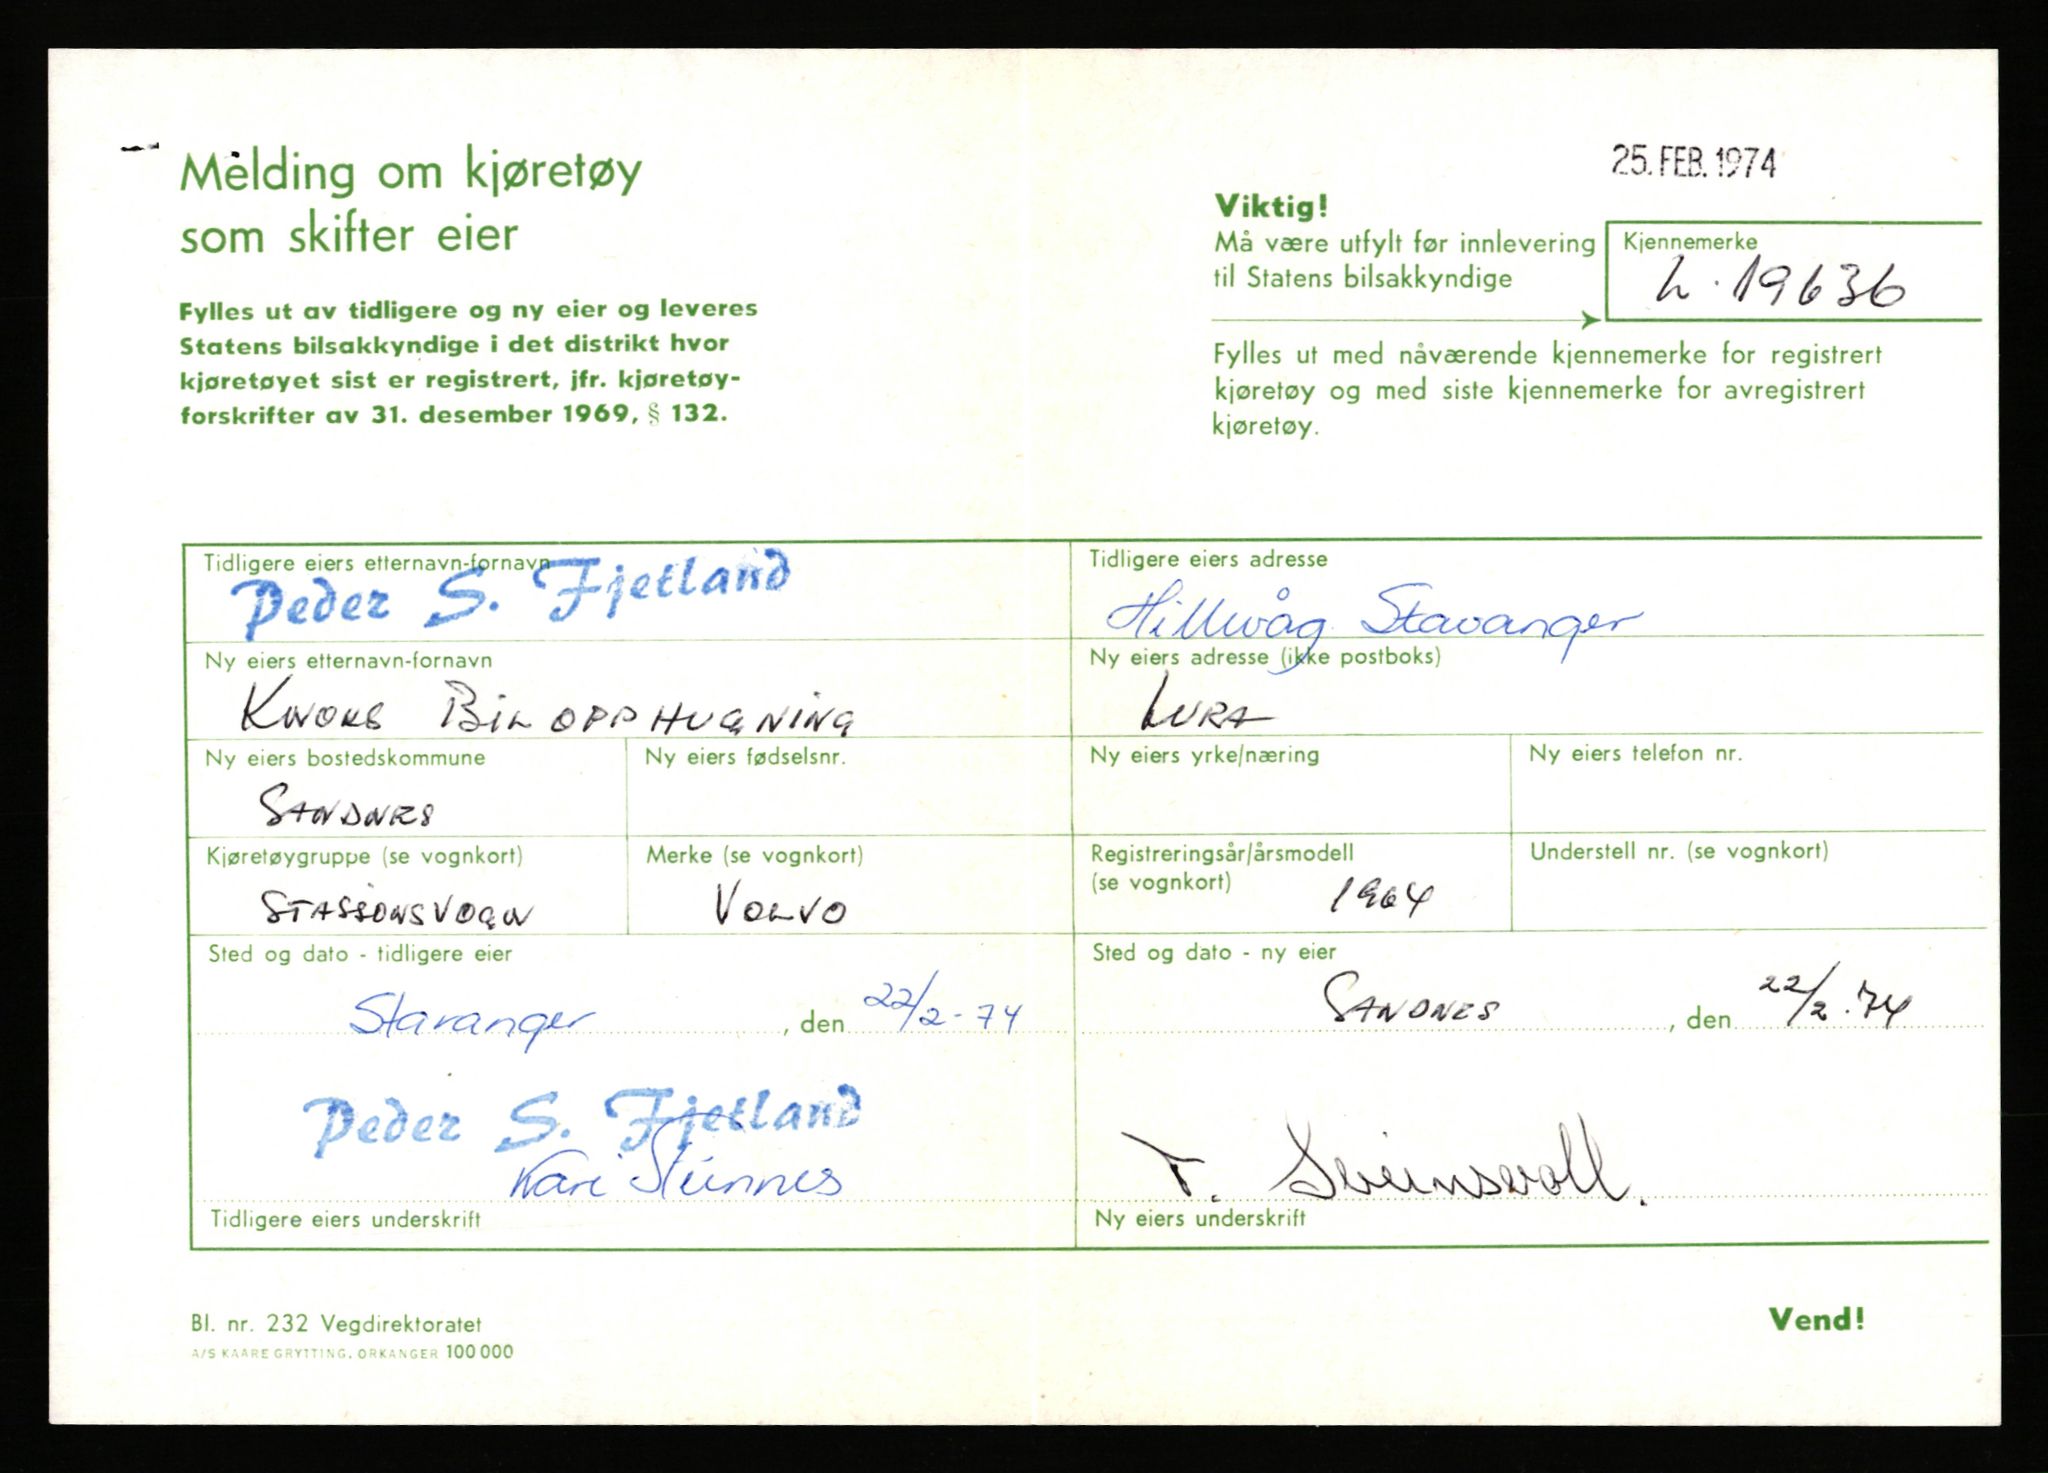 25. FEB. 1974
Melding om kjøretøy
som skifter eier
Fylles ut av tidligere og ny eier og leveres
Statens bilsakkyndige i det distrikt hvor
kjøretøyet sist er registrert, jfr. kjøretøy-
forskrifter av 31. desember 1969, § 132.
Viktig!
Må være utfylt før innlevering
til Statens bilsakkyndige
Kjennemerke
L. 19636
Fylles ut med nåværende kjennemerke for registrert
kjøretøy og med siste kjennemerke for avregistrert
kjøretøy.
Tidligere eiers etternavn-fornavn
Peder S. Fjetland
Tidligere eiers adresse
Hillevåg Stavanger
Ny eiers etternavn-fornavn
KNOKS BILOPPHUGNING
Ny eiers adresse (ikke postboks)
LURA
Ny eiers bostedskommune
SANDNES
Ny eiers fødselsnr.
Ny eiers yrke/næring
Ny eiers telefon nr.
Kjøretøygruppe (se vognkort)
STASSONSVOGN
Merke (se vognkort)
VOLVO
Registreringsår/årsmodell
(se vognkort)
1964
Understell nr. (se vognkort)
Sted og dato - tidligere eier
Stavanger, den 22/2-74
Sted og dato - ny eier
SANDNES, den 22/2.74
Peder S. Fjetland
Kari
Tidligere eiers underskrift
T. Sveinsvoll.
Ny eiers underskrift
Bl. nr. 232 Vegdirektoratet
A/S KAARE GRYTTING, ORKANGER 100 000
Vend!